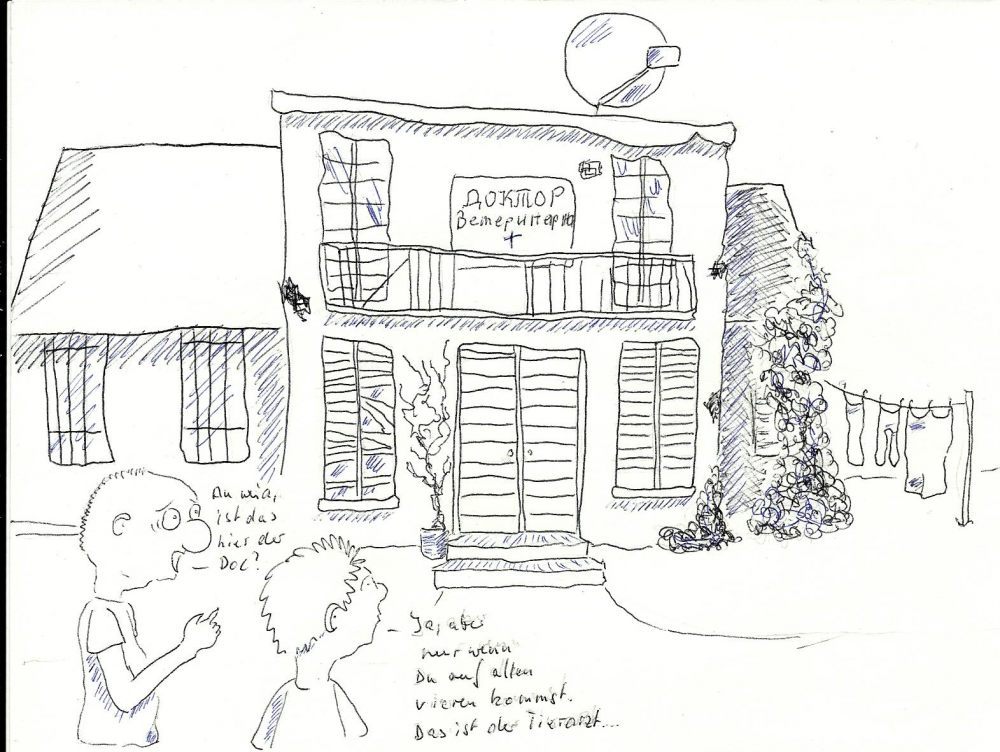 ДОКТОР
Ветеринарны
+
Au wia,
ist das
hier der
Doc?
Ja, aber
nur wenn
Du auf allen
vieren kommst.
Das ist der Tierarzt...